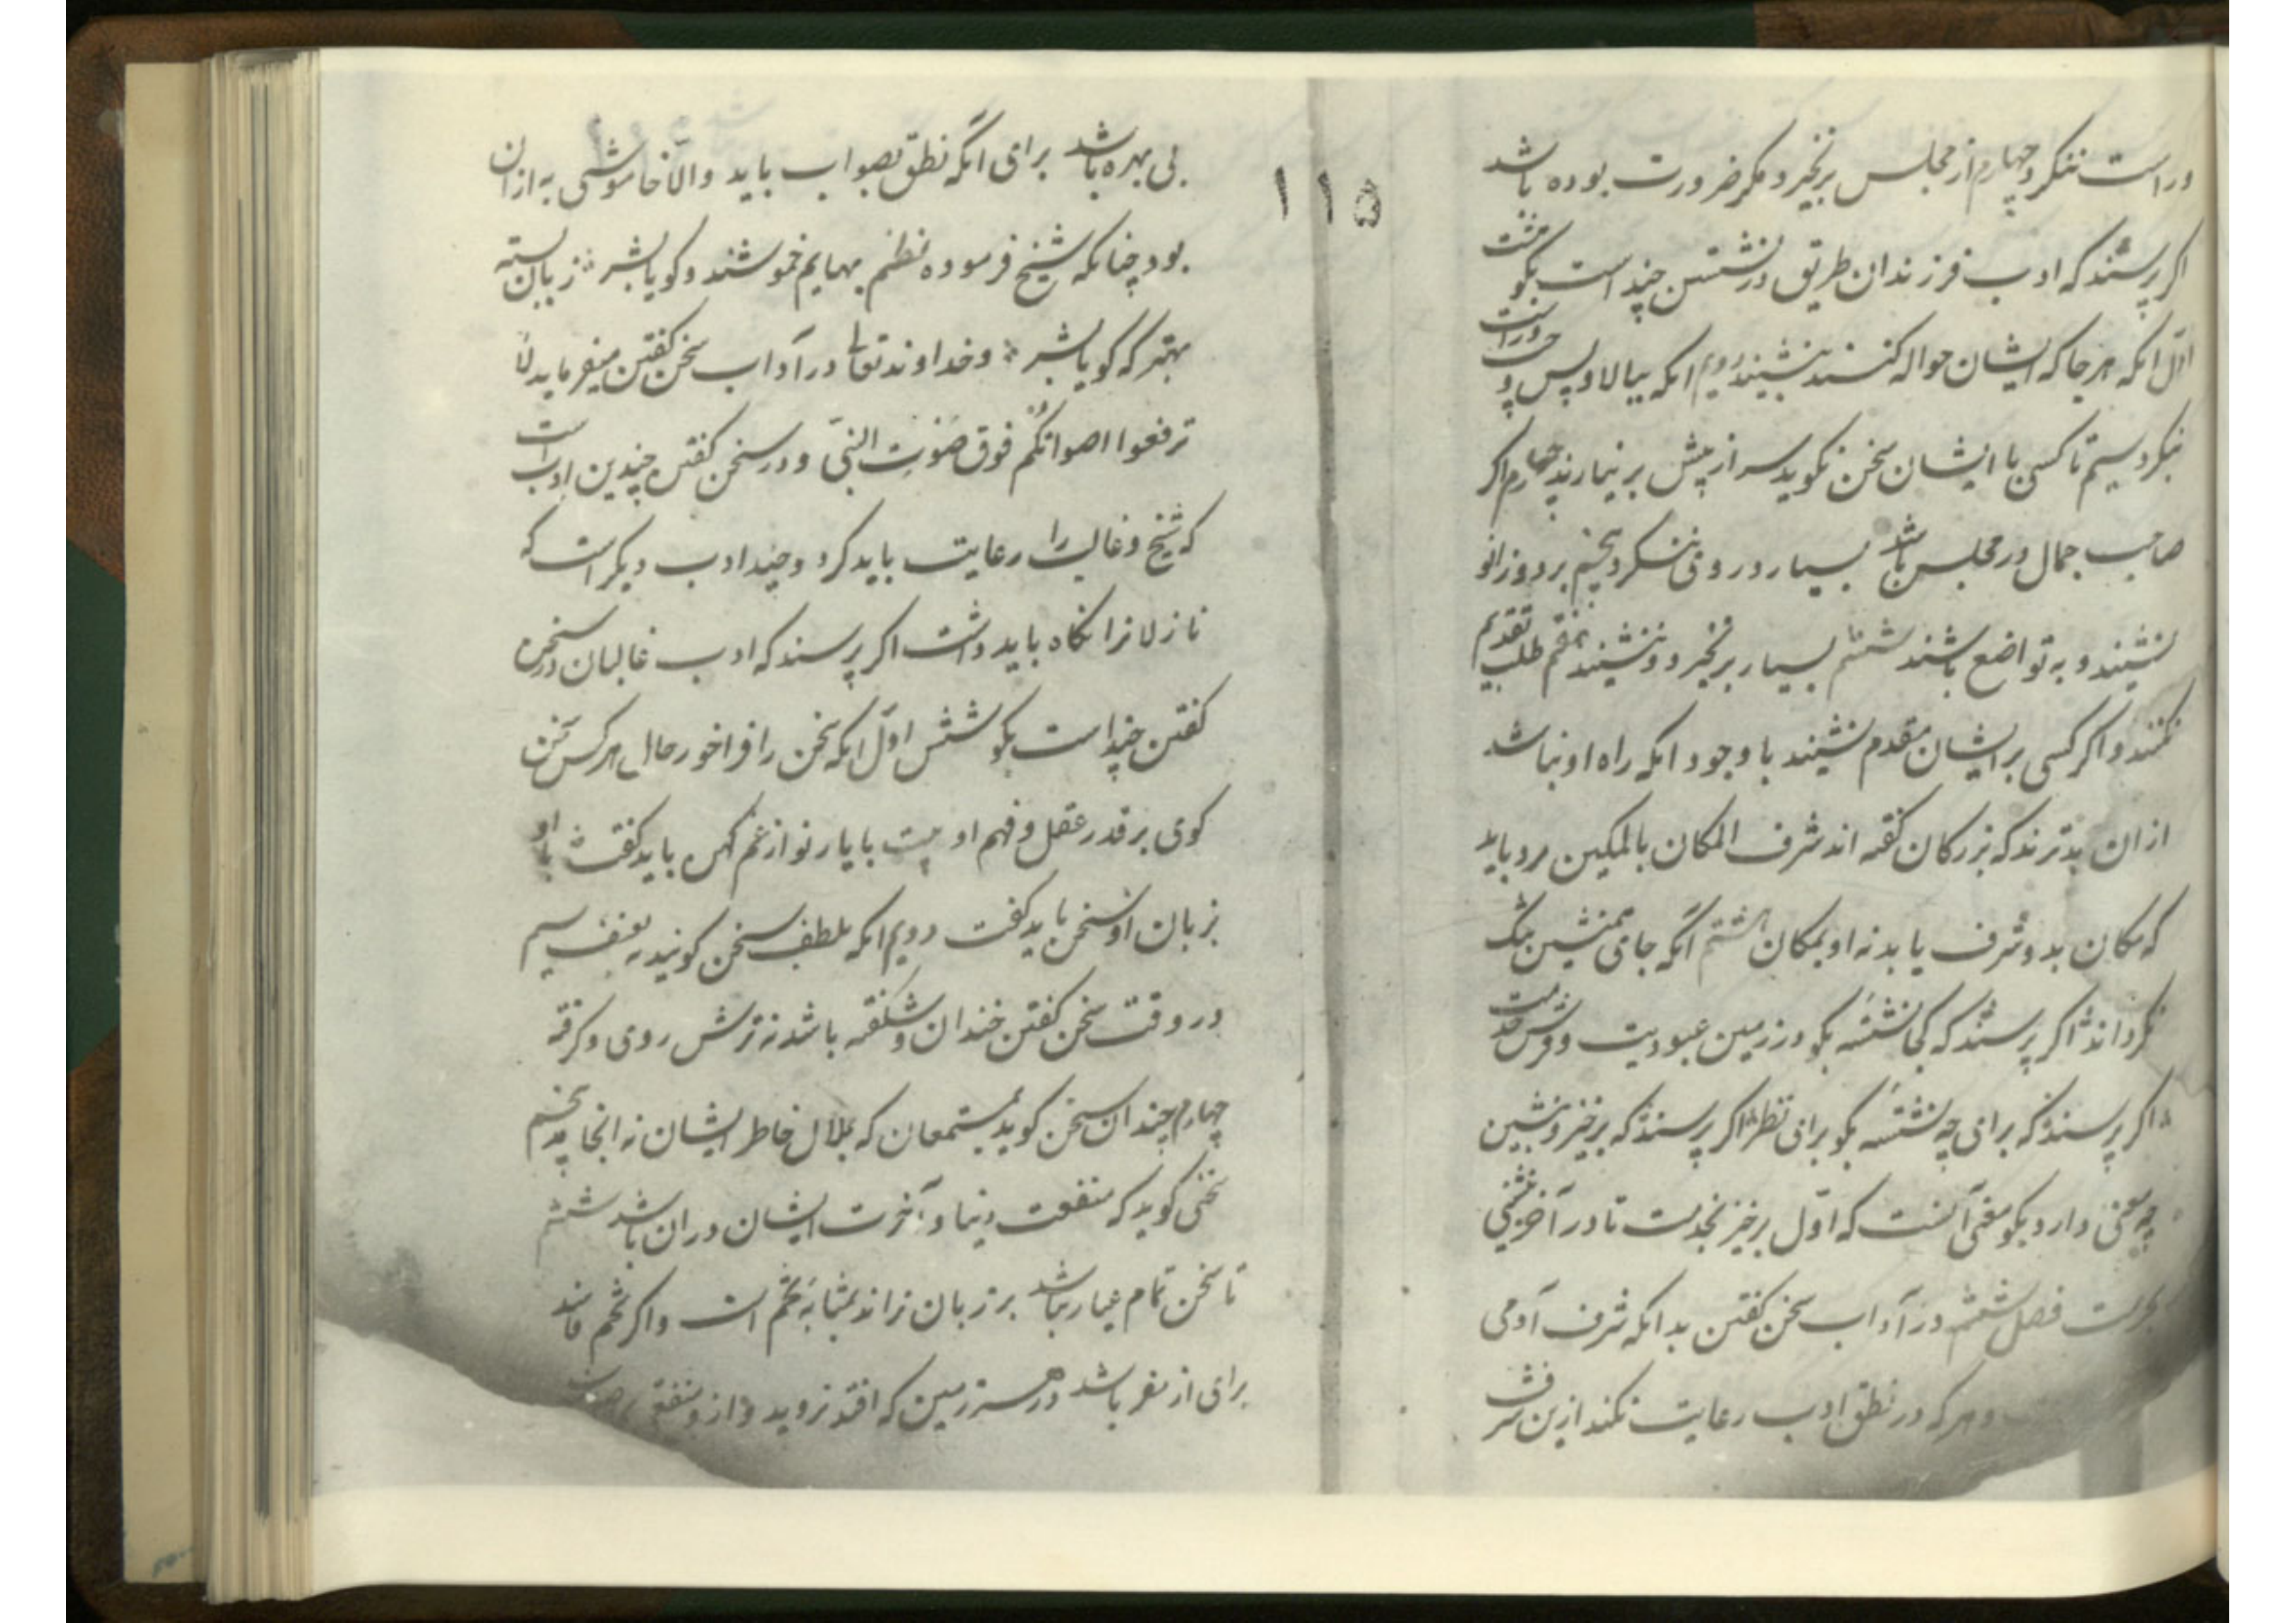 وراست ننکرد چهارم از مجلس برنخیزد مکر ضرورت بوده باشد
اکر پرسند که ادب فرزندان طریق در نشستن چند است بکو هشت
اوّل انکه هر جا که ایشان حواله کنند بنشیند دویم انکه ببالا و پس و چپ و راست
ننکرد سیم تا کسی با ایشان سخن نکوید سر از پیش برنیارند چهارم اکر
صاحب جمال در مجلس باشد بسیار در وی ننکرد پنجم بر دو زانو
نشیند و به تواضع باشند ششم بسیار برنخیزد و ننشیند هفتم طلب تقدیم
نکنند و اکر کسی بر ایشان مقدم نشیند با وجود انکه راه او نباشد
از ان بد نبرند که بزرکان کفته اند شرف المکان بالمکین مرد باید
که مکان بدو شرف یابد نه او بمکان هشتم انکه جای همنشین تنک
نکرداند اکر پرسند که کجا نشسته بکو در زمین عبودیت و فرش خدمت
اکر پرسند که برای چه نشسته بکو برای نظر اکر پرسند که برخیز و بنشین
چه معنی دارد بکو معنی آنست که اوّل برخیز بخدمت تا در آخر بنشینی
بحرمت فصل ششم در آداب سخن کفتن بدانکه شرف آدمی
و هر که در نطق ادب رعایت نکند ازین شرف
۱۱۵
بی بهره باشد برای انکه نطق بصواب باید والّا خاموشی به از ان
بود چنانکه شیخ فرموده نظم بهایم خموشند و کویا بشر زبان بسته
بهتر که کویا بشر و خداوند تعالی در آداب سخن کفتن میفرماید لا
ترفعوا اصواتکم فوق صوت النبیّ و در سخن کفتن چندین ادب است
که شیخ و غالب را رعایت باید کرد و چند ادب دیکر است که
نازلانرا نکاه باید داشت اکر پرسند که ادب غالبان در سخن
کفتن چند است بکو شش اوّل انکه سخن را فراخور حال هر کس سخن
کوی بر قدر عقل و فهم او بیت با یار نو از غم کهن باید کفت با او
بزبان او سخن باید کفت دویم انکه بلطف سخن کویند نه بعنف سیم
در وقت سخن کفتن خندان و شکفته باشد نه ترش روی و کرفته
چهارم چندان سخن کوید بمستمعان که بملال خاطر ایشان نه انجامد پنجم
سخنی کوید که منفعت دنیا و آخرت ایشان در ان باشد ششم
تا سخن تمام عیار نباشد بر زبان نراند بمثابه تخم است و اکر تخم فاسد
برای از مغز باشد در هر سرزمین که افتد نروید و از و منفعتی حاصل